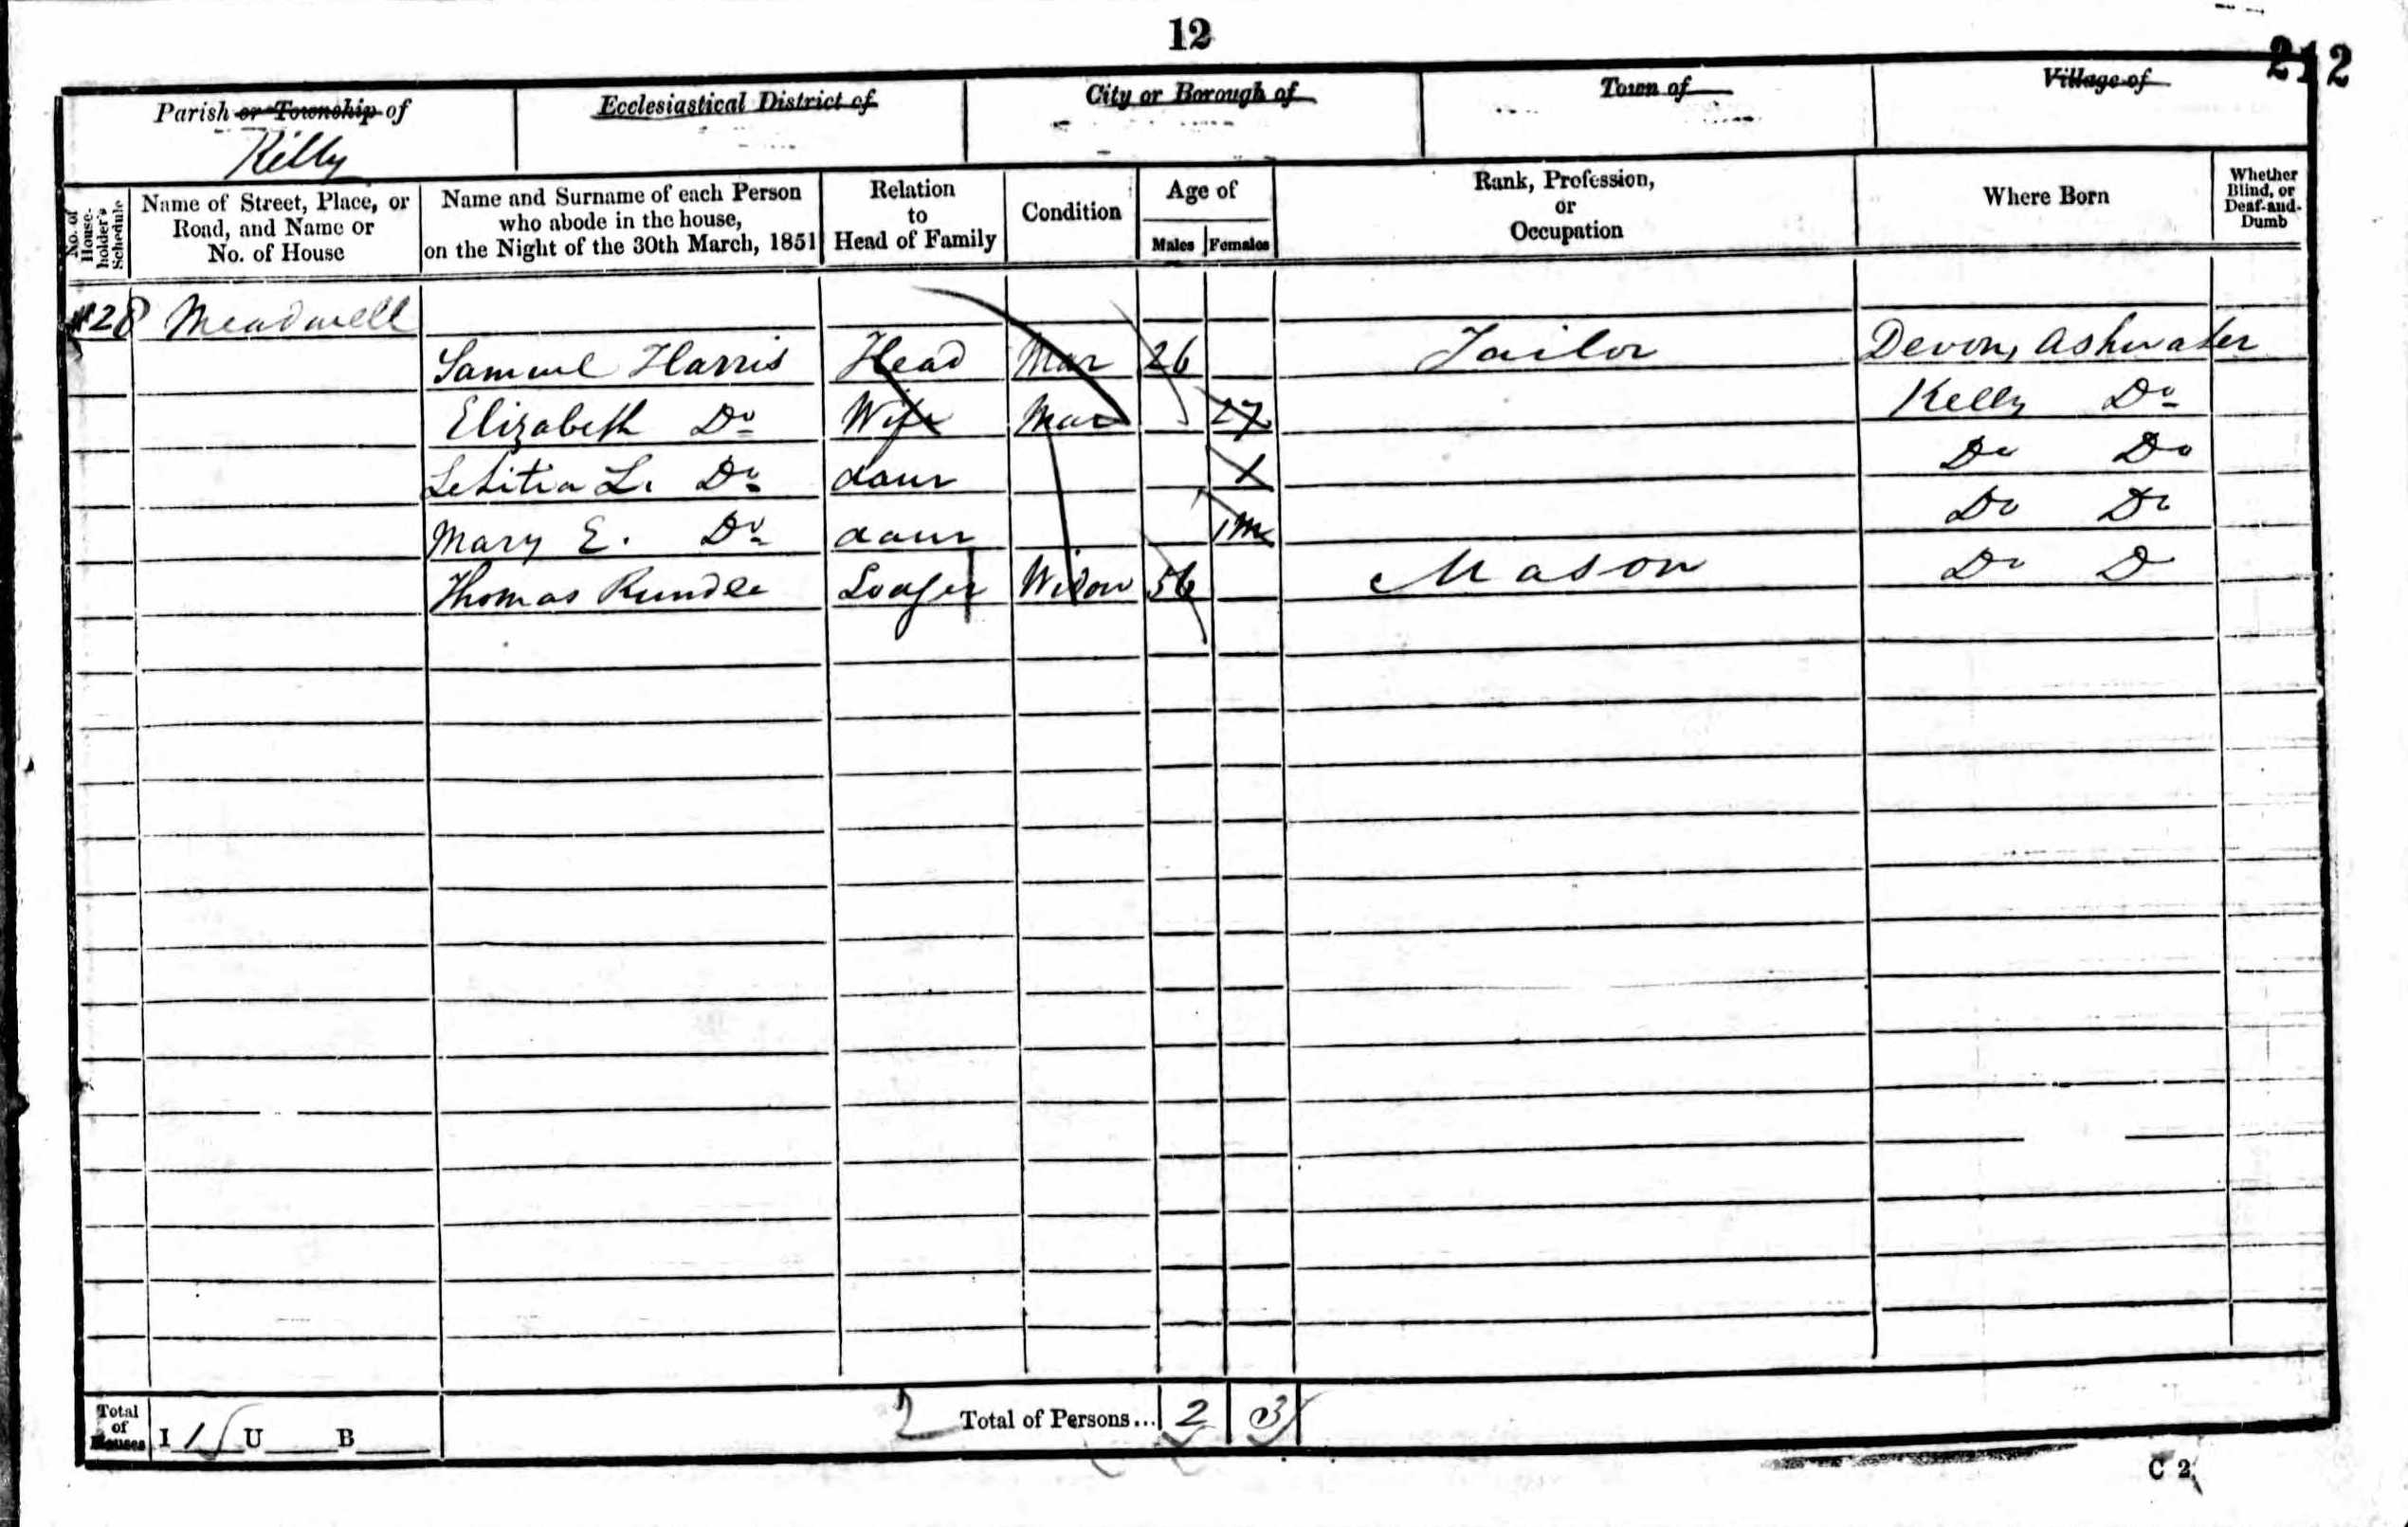 12
212
Parish or Township of
Kelly
Ecclesiastical District of
City or Borough of
Town of
Village of
No. of House-holder's Schedule
Name of Street, Place, or Road, and Name or No. of House
Name and Surname of each Person who abode in the house, on the Night of the 30th March, 1851
Relation to Head of Family
Condition
Age of
Males Females
Rank, Profession, or Occupation
Where Born
Whether Blind, or Deaf-and-Dumb
28 Meadwell
Samuel Harris Head Mar 26 Tailor Devon, Ashwater
Elizabeth Do Wife Mar 27 Kelly Do
Letitia L. Do daur 1 Do Do
Mary E. Do daur 1m Do Do
Thomas Rundle Lodger Widow 56 Mason Do D
Total of Houses I 1 U B 2 Total of Persons... 2 3
C 2